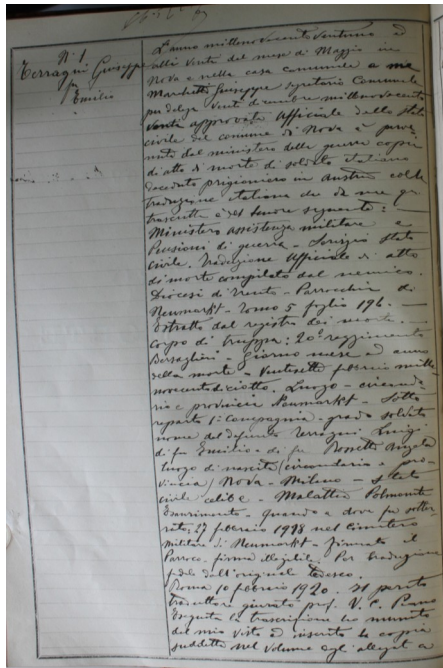 N. 1
Terragni Giuseppe
fu
Emilio
L'anno millenovecento ventuno ed
alli venti del mese di Maggio in
Nova e nella casa comunale a me
Marchetti Giuseppe segretario Comunale
per delega venti dicembre millenovecento
venti approvata Ufficiale dello stato
civile del comune di Nova è perve
nuta dal ministero della guerra copia
di atto di morte di soldato italiano
deceduto prigioniero in Austria colla
traduzione italiana che da me qui
trascritta è del tenore seguente: —
Ministero assistenza militare e
Pensioni di guerra - Servizio stato
Civile. Traduzione Ufficiale di atto
di morte compilato dal nemico.
Diocesi di Trento - Parrocchia di
Neumarkt - Tomo 5 foglio 196. —
Estratto dal registro dei morti. —
Corpo di truppa: 20° reggimento
Bersaglieri - Giorno mese ed anno
della morte - Ventisette febbraio mille
novecentodiciotto. Luogo - circonda
rio e provincia Neumarkt - Sotto
reparto 1ª Compagnia - grado soldato
nome del defunto Terragni Luigi
di fu Emilio - di fu Rossetti Angela
luogo di nascita (circondario e pro-
vincia) Nova - Milano - stato
civile celibe - Malattia Polmonite
Esaurimento - quando e dove fu sotter
rato: 27 febbraio 1918 nel Cimitero
Militare di Neumarkt - Firmato il
Parroco. firma illegibile. Per traduzione
fedele dall'original tedesco.
Roma 10 febbraio 1920. Il perito
traduttore giurato prof. V. C.
Eseguita la trascrizione ho munito
del mio visto ed inserito la copia
suddetta nel volume degli allegati a